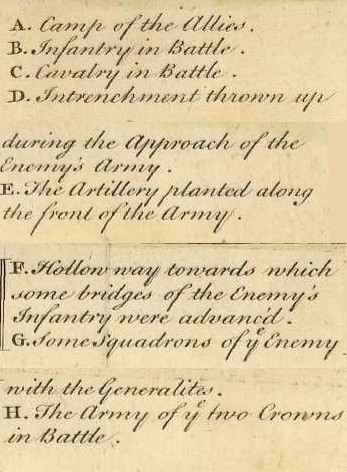 A. Camp of the Allies.
B. Infantry in Battle.
C. Cavalry in Battle.
D. Intrenchment thrown up
during the Approach of the
Enemy's Army.
E. The Artillery planted along
the front of the Army.
F. Hollow way towards which
some bridges of the Enemy's
Infantry were advanc'd.
G. Some Squadrons of yᵉ Enemy
with the Generalites.
H. The Army of yᵉ two Crowns
in Battle.